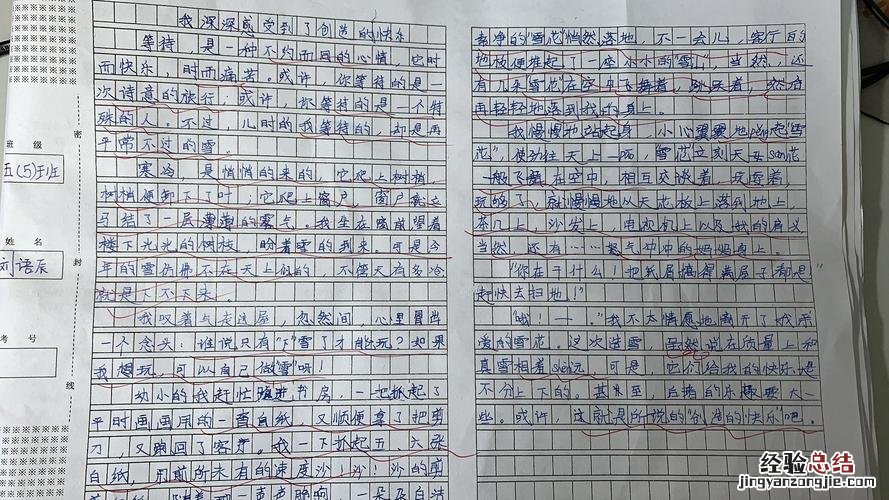 我深深感受到了创造的快乐
等待，是一种不约而同的心情，它时
而快乐，时而痛苦。或许，你等待的是一
次诗意的旅行；或许，你等待的是一个特
殊的人。不过，儿时的我等待的，却是再
平常不过的雪。
寒冷，是悄悄的来的，它爬上树梢，
树梢便卸下了叶；它爬上窗户，窗户就立
马结了一层薄薄的雾气。我坐在窗前望着
楼下光光的树枝，盼着雪的到来，可是今
年的雪仿佛不在天上似的，不管天有多冷
就是下不下来。
我叹着气走进屋，忽然间，心里冒出
一个念头：谁说只有"下"雪了才能玩？如果
我想玩，可以自己"做雪"呀！
幼小的我赶忙 进书房，一把抓起了
平时画画用的一沓白纸，又顺便拿了把剪
刀，又跑回了客厅。我一下抓起五、六张
白纸，用前所未有的速度沙！沙！沙的剪
一朵朵白洁
素净的"雪花"悄然落地，不一会儿，客厅的
地板便堆起了一座小小的"雪 "，当然，还
有几朵"雪花"在空中飞舞着，跳跃着，然后
再轻轻地落到我的身上。
我慢慢地站起身，小心翼翼地pěng起"雪
花"，使劲往天上一 ，"雪花"立刻天女san花
一般飞 在空中，相互交谈着，玩耍着，
玩够了，就慢慢地从天花板上落到地上，
茶几上，沙发上，电视机上以及我的肩 
当然，还有……怒气冲冲的妈妈身上。
"你在干什么！把纸屑搞得满屋子都是"
赶快去扫地！"
"哦！—。"我不太情愿地离开了我亲
爱的雪花。这次造雪，虽然说在质量上和
真雪相差 远，可是，它们给我的快乐是
不分上下的。甚至，自 的乐 要大一
些。或许，这就是所说的"创造的快乐"吧。
班级
五(5)班
姓名
刘语辰
考号
密
封
线
经验总结
jingyanzongjie.com